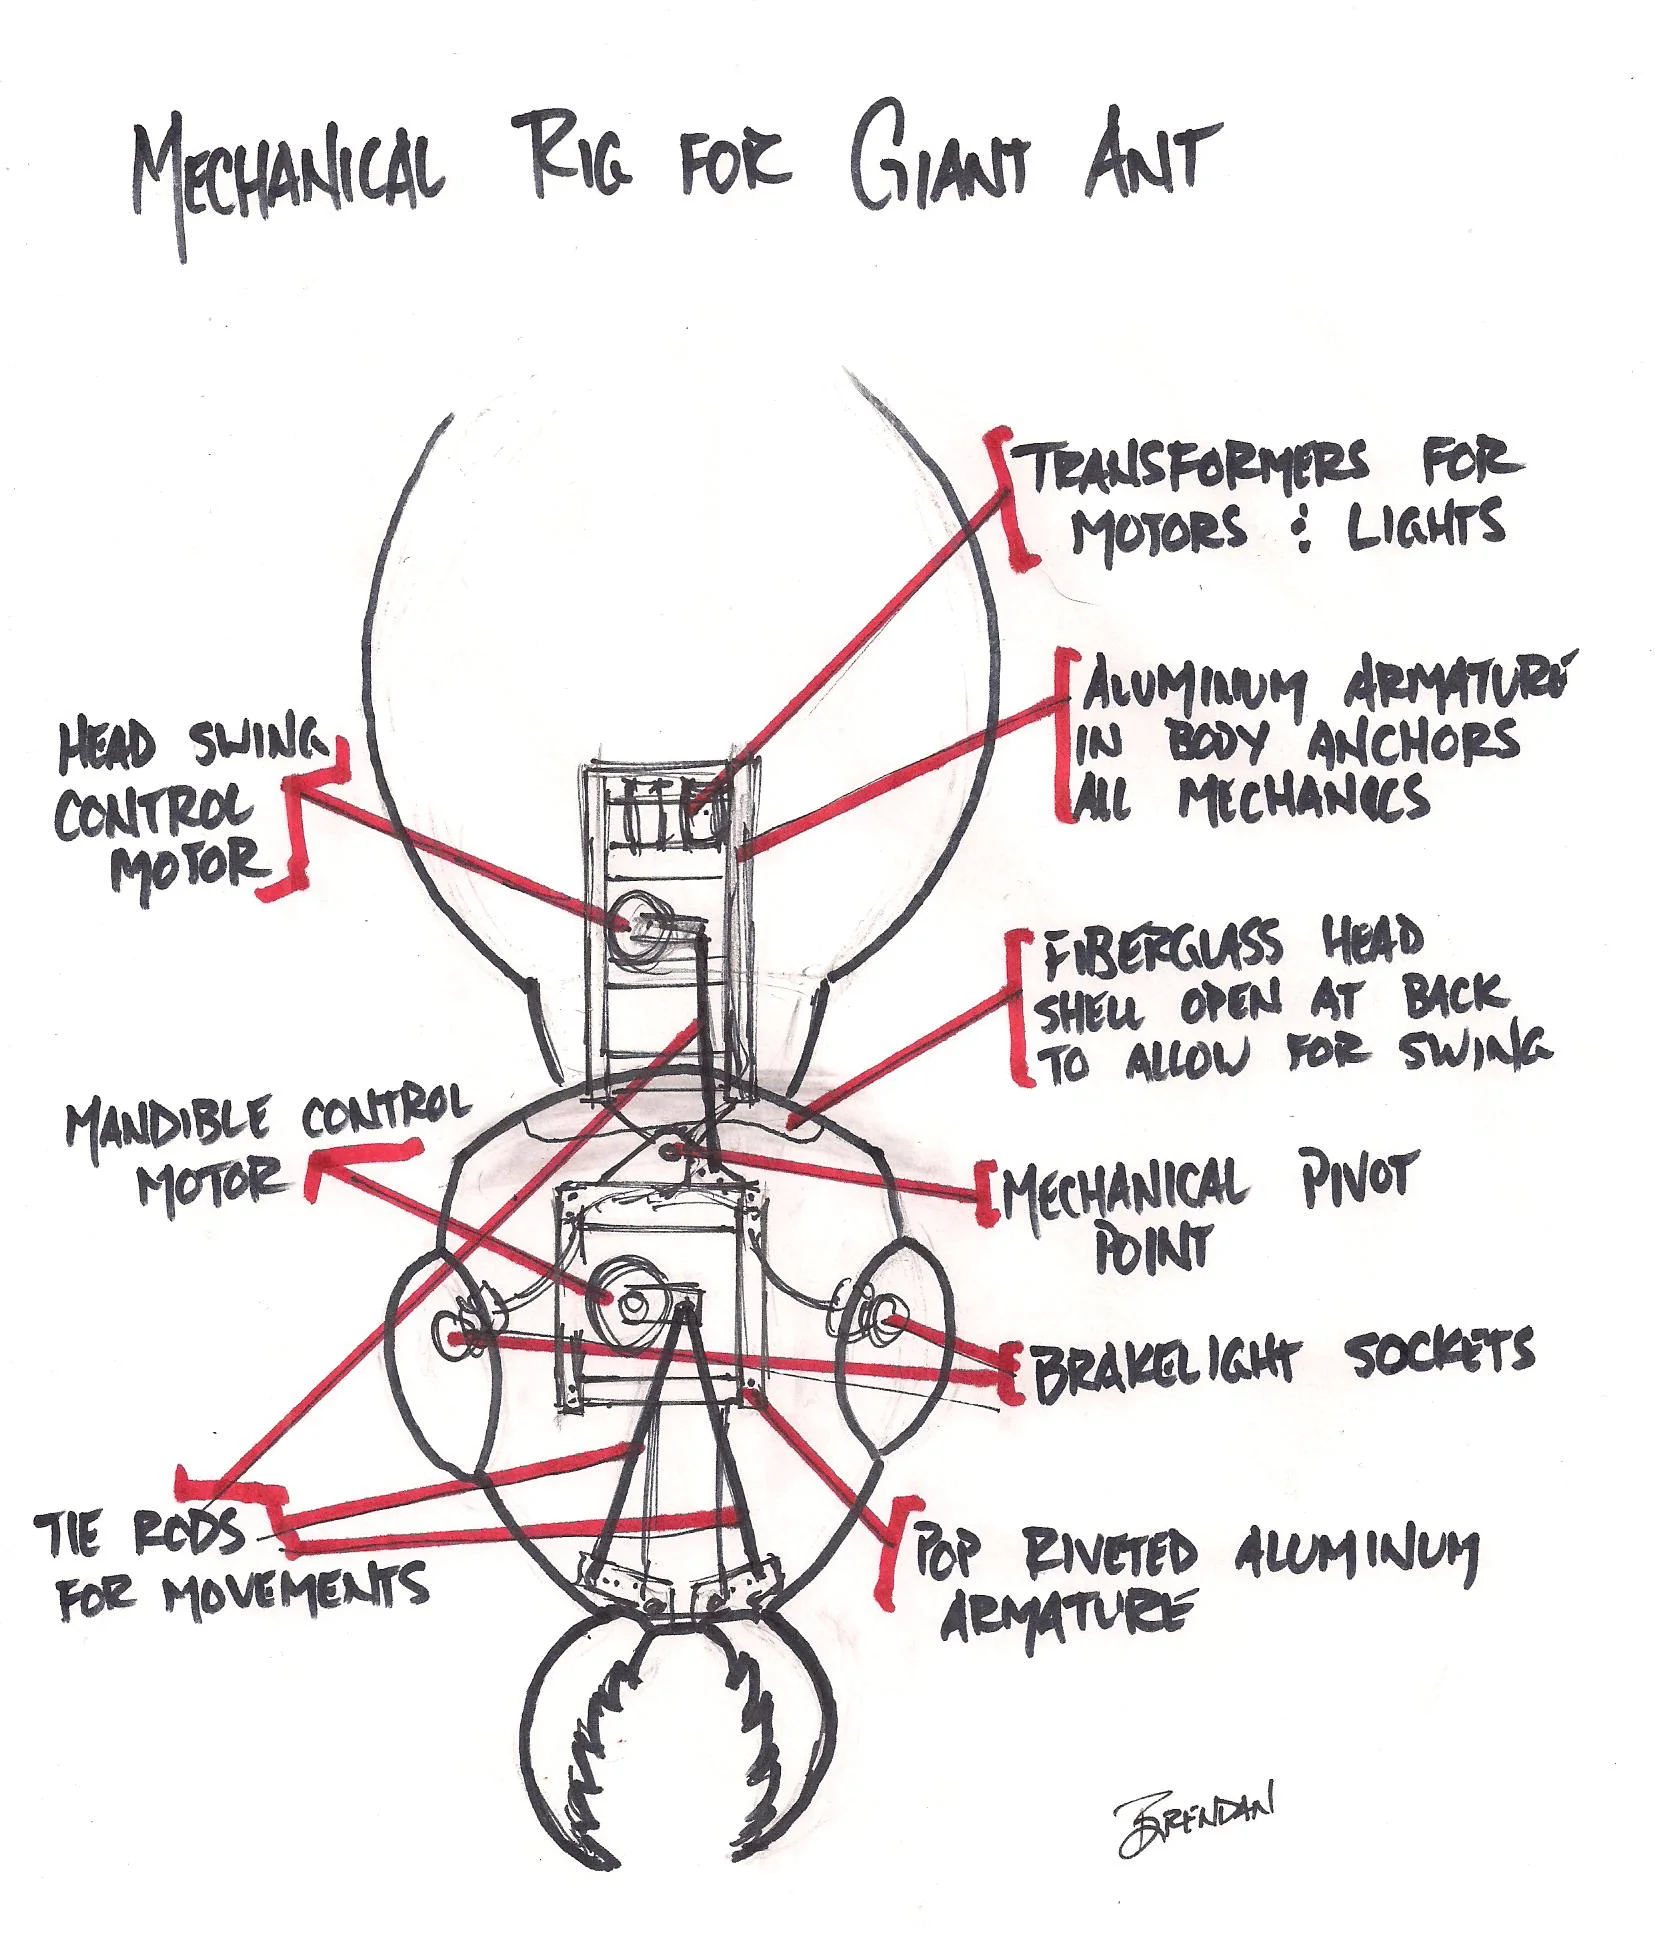 MECHANICAL RIG FOR GIANT ANT
TRANSFORMERS FOR
MOTORS & LIGHTS
ALUMINUM ARMATURE
IN BODY ANCHORS
ALL MECHANICS
HEAD SWING
CONTROL
MOTOR
FIBERGLASS HEAD
SHELL OPEN AT BACK
TO ALLOW FOR SWING
MANDIBLE CONTROL
MOTOR
MECHANICAL PIVOT
POINT
BRAKELIGHT SOCKETS
TIE RODS
FOR MOVEMENTS
POP RIVETED ALUMINUM
ARMATURE
BRENDAN